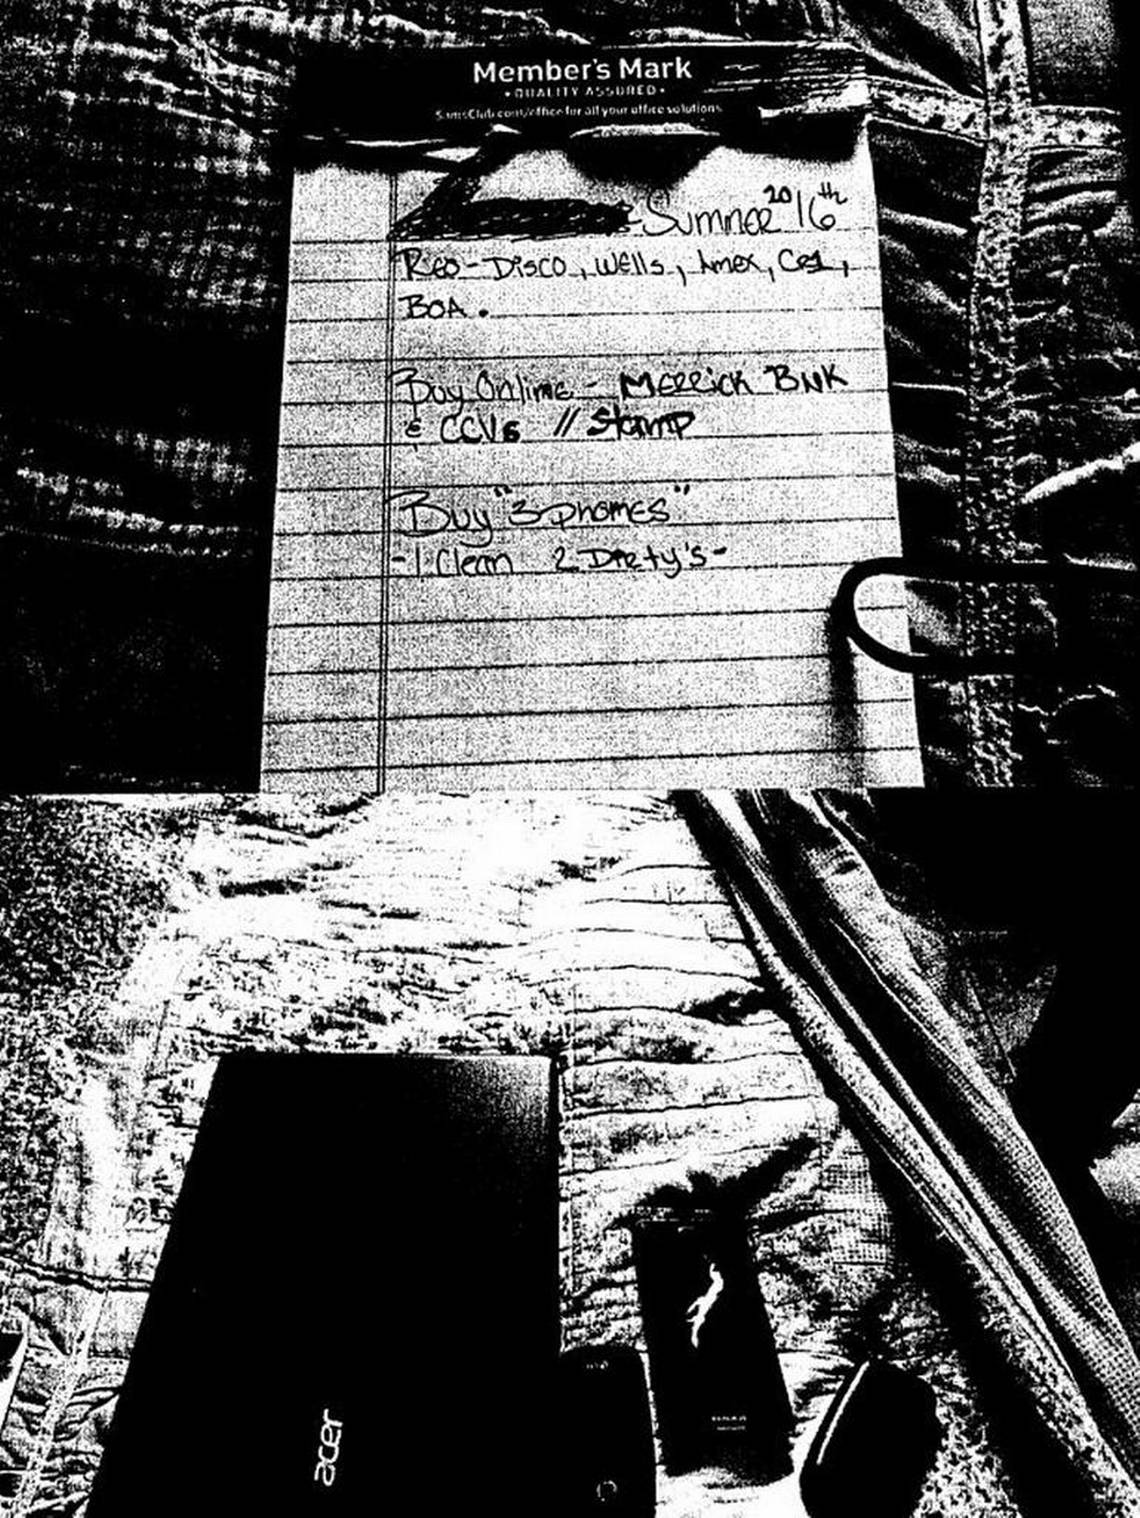 Member's Mark
• QUALITY ASSURED •
SamsClub.com/office for all your office solutions
- Summer 2016th
Reo - Disco, Wells, Amex,
BOA.
Buy Online - Merrick BNK
& CCVs // Stamp
Buy "3 phones"
- 1 Clean 2 Dirty's -
acer